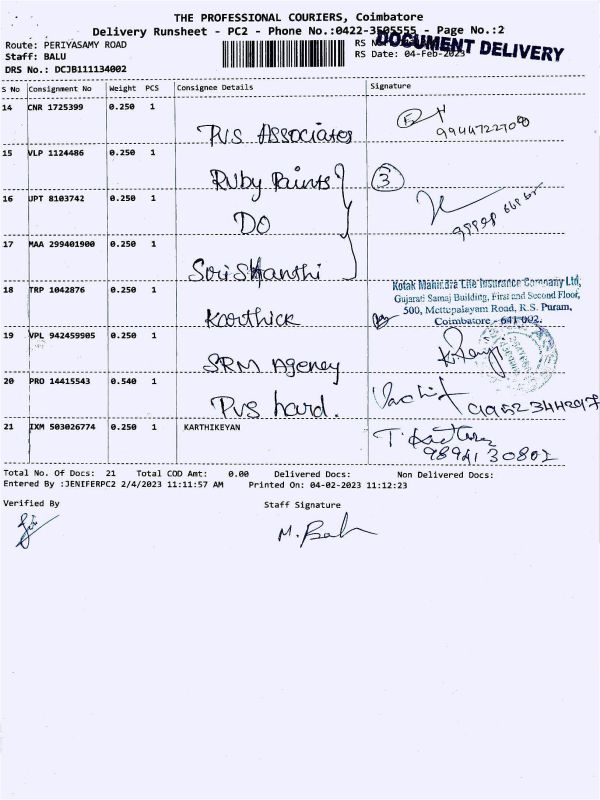 THE PROFESSIONAL COURIERS, Coimbatore
Delivery Runsheet - PC2 - Phone No.:0422-3505555 - Page No.:2
Route: PERIYASAMY ROAD
RS
DOCUMENT DELIVERY
Staff: BALU
RS Date: 04-Feb-2023
DRS No.: DCJB111134002
S No Consignment No Weight PCS Consignee Details Signature
14 CNR 1725399 0.250 1
9944722700
PVS Associates
15 VLP 1124486 0.250 1
Ruby Paints
3
16 UPT 8103742 0.250 1
DO
17 MAA 299401900 0.250 1
Sri Shanthi
18 TRP 1042876 0.250 1
Kotak Mahindra Life Insurance Company Ltd,
Gujarati Samaj Building, First and Second Floor,
500, Mettupalayam Road, R.S. Puram,
Coimbatore - 641 002.
Karthick
19 VPL 942459905 0.250 1
SRM Agency
20 PRO 14415543 0.540 1
PVS hard.
9952344297
21 IXM 503026774 0.250 1 KARTHIKEYAN
9894130802
Total No. Of Docs: 21 Total COD Amt: 0.00 Delivered Docs: Non Delivered Docs:
Entered By :JENIFERPC2 2/4/2023 11:11:57 AM Printed On: 04-02-2023 11:12:23
Verified By Staff Signature